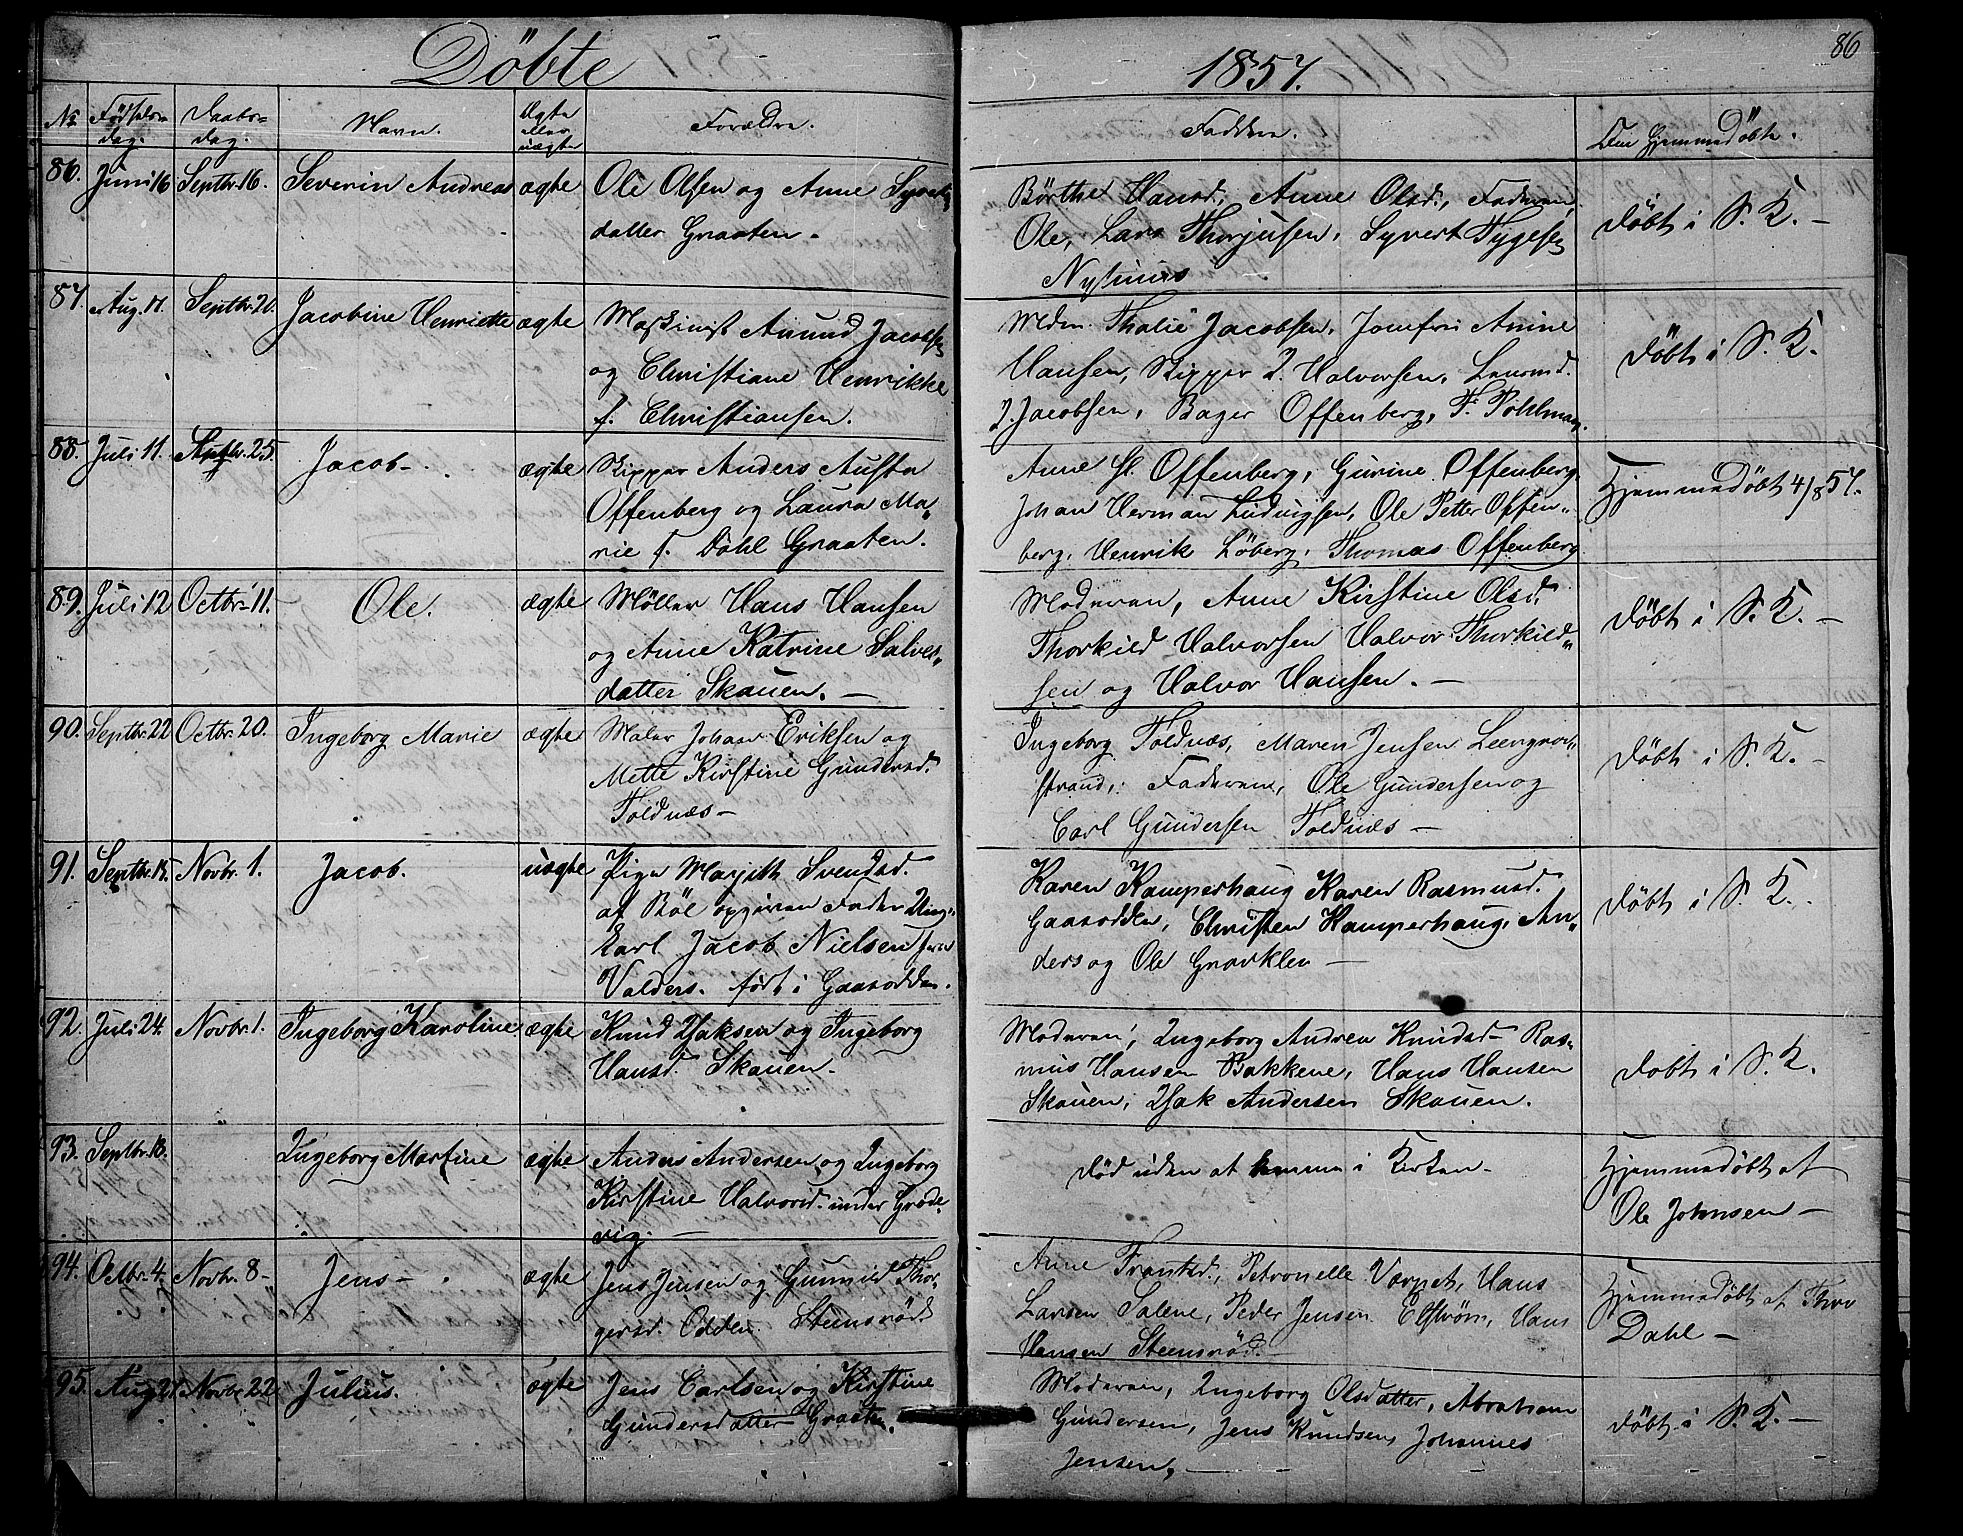 Döbte
1857.
86
No
Fødsels-
dag.
Daabs-
dag.
Navn.
Ægte
eller
uægte
Forældre.
Faddere.
Om Hjemmedöbt.
86. Juni 16 Septbr. 16. Severin Andreas ægte
Ole Olsen og Anne Syverts
datter Graaten.
Börthe Hansd., Anne Olsd., Faderen
Ole, Lars Thorjusen, Syvert Tygesen
Döbt i S. K. —
87. Aug. 11. Septbr. 20. Jacobine Henriette ægte
Maskinist Amund Jacobsen
og Christiane Henrikke
f. Christiansen.
Mdm. Thalie Jacobsen, Jomfru Anine
Hansen, Skipper J. Halvorsen,
J. Jacobsen, Bager Offenberg, F. Pohlman.
Döbt i S. K.
88. Juli 11. Septbr. 25. Jacob. ægte
Skipper Anders Austa
Offenberg og Laura Ma-
rie f. Dahl Graaten.
Anne Sl. Offenberg, Gurine Offenberg,
Johan Herman Ludvigsen, Ole Petter Offen-
berg, Henrik Löberg, Thomas Offenberg
Hjemmedöbt 4/8 57.
89. Juli 12 Octbr. 11. Ole. ægte
Möller Hans Hansen
og Anne Katrine Salves-
datter Skauen. —
Moderen, Anne Kirstine Olsd.
Thorkild Halvorsen Halvor Thorkild-
sen og Halvor Hansen. —
Döbt i S. K. —
90. Septbr. 22 Octbr. 20. Ingeborg Marie ægte
Maler Johan Eriksen og
Mette Kirstine Gundersd.
Foldnæs —
Ingeborg Foldnæs, Maren Jensen Leergrov-
strand, Faderen, Ole Gundersen og
Carl Gundersen Foldnæs —
Döbt i S. K. —
91. Septbr. 15. Novbr. 1. Jacob. uægte
Pige Margith Svendsd.
af Böe opgiven Fader Ung-
karl Jacob Nielsen fra
Valders. født i Gaasodden.
Karen Kamperhaug Karen Rasmusd.
Gaasodden, Christen Kamperhaug, An-
ders og Ole Gravklev —
Döbt i S. K.
92. Juli 24. Novbr. 1. Ingeborg Karoline ægte
Knud Isaksen og Ingeborg
Hansd. Skauen.
Moderen, Ingeborg Andrea Knudsd. Ras-
mus Hansen Bakkene, Hans Hansen
Skauen, Isak Andersen Skauen.
Döbt i S. K.
93. Septbr. 18. Ingeborg Martine ægte
Anders Andersen og Ingeborg
Kirstine Halvorsd. under Grøde-
vig. —
Död uden at komme i Kirken.
Hjemmedöbt af
Ole Johnsen —
94. Octbr. 4. Novbr. 8 — Jens — ægte
Jens Jensen og Gunnild Thor-
gersd. Odden. Steensröd.
Anne Frantsd., Petronelle Vornet, Hans
Larsen Salene, Peder Jensen Elström, Hans
Hansen Steensröd.
Hjemmedöbt af Thor
Dahl —
95. Aug. 21 Novbr. 22 Julius. ægte
Jens Carlsen og Kirstine
Gundersdatter Graaten.
Moderen, Ingeborg Olsdatter, Abraham
Gundersen, Jens Knudsen, Johannes
Jensen. —
Döbt i S. K. —